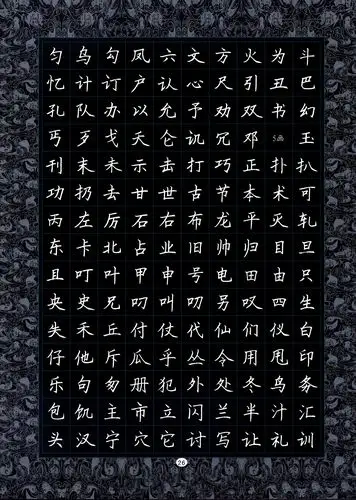 勺乌勾凤六文方火为斗
忆计订户认心尺引丑巴
孔队办以允予劝双书幻
丐歹戈天仑讥冗邓5画玉
刊末未示击打巧正扑扒
功扔去甘世古节本术可
丙左厉石右布龙平灭轧
东卡北占业旧帅归目旦
且叮叶甲申号电田由只
央史兄叼叫叨另叹四生
失禾丘付仗代仙们仪白
仔他斥瓜乎丛令用甩印
乐句匆册犯外处冬鸟务
包饥主市立闪兰半汁汇
头汉宁穴它讨写让礼训
26